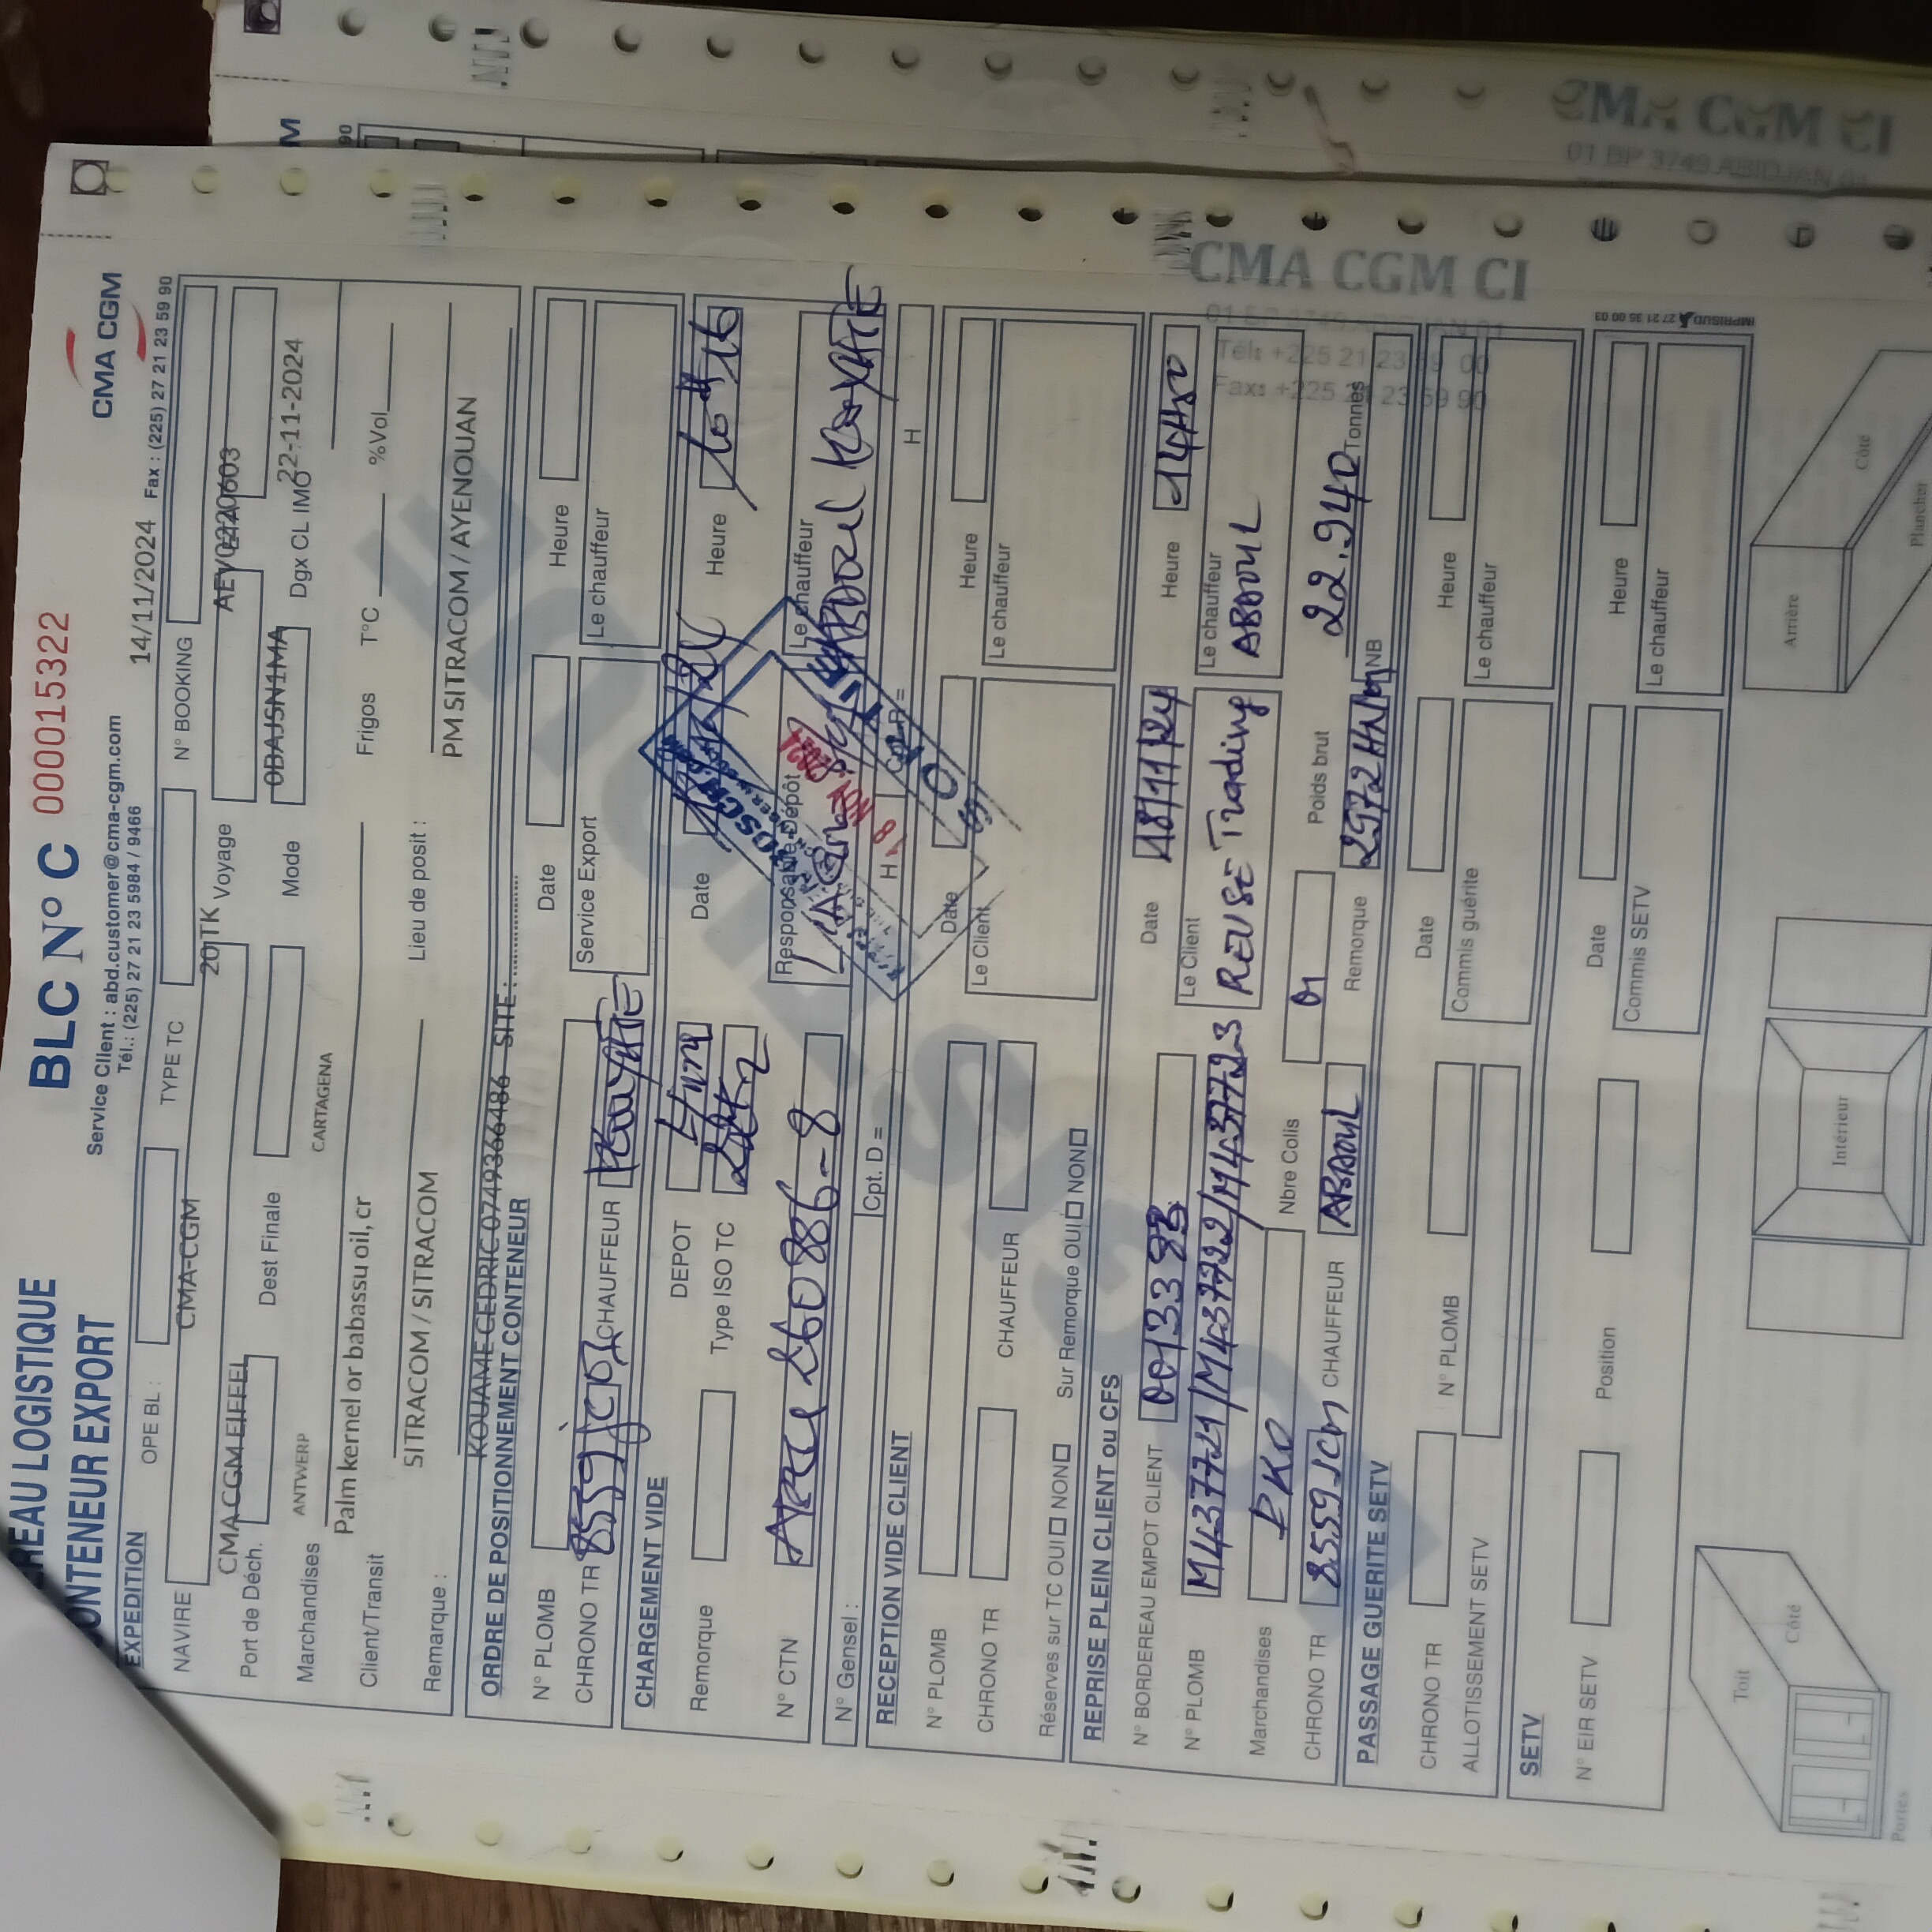 EREAU LOGISTIQUE
ONTENEUR EXPORT
BLC N° C 000015322
Service Client : abd.customer@cma-cgm.com
Tél.: (225) 27 21 23 5984 / 9466
CMA CGM
14/11/2024 Fax : (225) 27 21 23 59 90
EXPEDITION
OPE BL : CMA-CGM TYPE TC 20 TK N° BOOKING AEV0220603
NAVIRE CMA CGM EIFFEL Voyage 0BAJSN1MA ETA 22-11-2024
Port de Déch. ANTWERP Dest Finale CARTAGENA Mode Dgx CL IMO
Marchandises Palm kernel or babassu oil, cr
Frigos T°C %Vol
Client/Transit SITRACOM / SITRACOM Lieu de posit : PM SITRACOM / AYENOUAN
Remarque : KOUAME CEDRIC 0749366486 SITE : ..................
ORDRE DE POSITIONNEMENT CONTENEUR
N° PLOMB Date Heure
CHRONO TR 8559jc01 CHAUFFEUR KOUYATE Service Export Le chauffeur
CHARGEMENT VIDE
DEPOT Date Heure 10H16
Remorque Type ISO TC
N° CTN 260886-8 Responsable Dépôt Le chauffeur
ABDOUL KOUYATE
18 NOV. 2024
SORTIE
N° Gensel : Cpt. D = H Cpt. R = H
RECEPTION VIDE CLIENT
N° PLOMB Date Heure
CHRONO TR CHAUFFEUR Le Client Le chauffeur
Réserves sur TC OUI NON Sur Remorque OUI NON
REPRISE PLEIN CLIENT ou CFS
N° BORDEREAU EMPOT CLIENT 0013383 Date 18/11/24 Heure 14H50
N° PLOMB M437721/M437722/M437723 Le Client REUSE Trading Le chauffeur ABDOUL
Marchandises PKO Nbre Colis 01 Poids brut 22.940 Tonnes
CHRONO TR 8559JC01 CHAUFFEUR ABDOUL Remorque 2972HN01 NB
PASSAGE GUERITE SETV
CHRONO TR N° PLOMB Date Heure
ALLOTISSEMENT SETV Commis guérite Le chauffeur
SETV
N° EIR SETV Position Date Heure
Commis SETV Le chauffeur
Toit
Côté
Portes
Intérieur
Arrière
Côté
Plancher
LOGISTIQUE
CMA CGM CI
IMPRISUD 27 21 35 00 03
CMA CGM CI